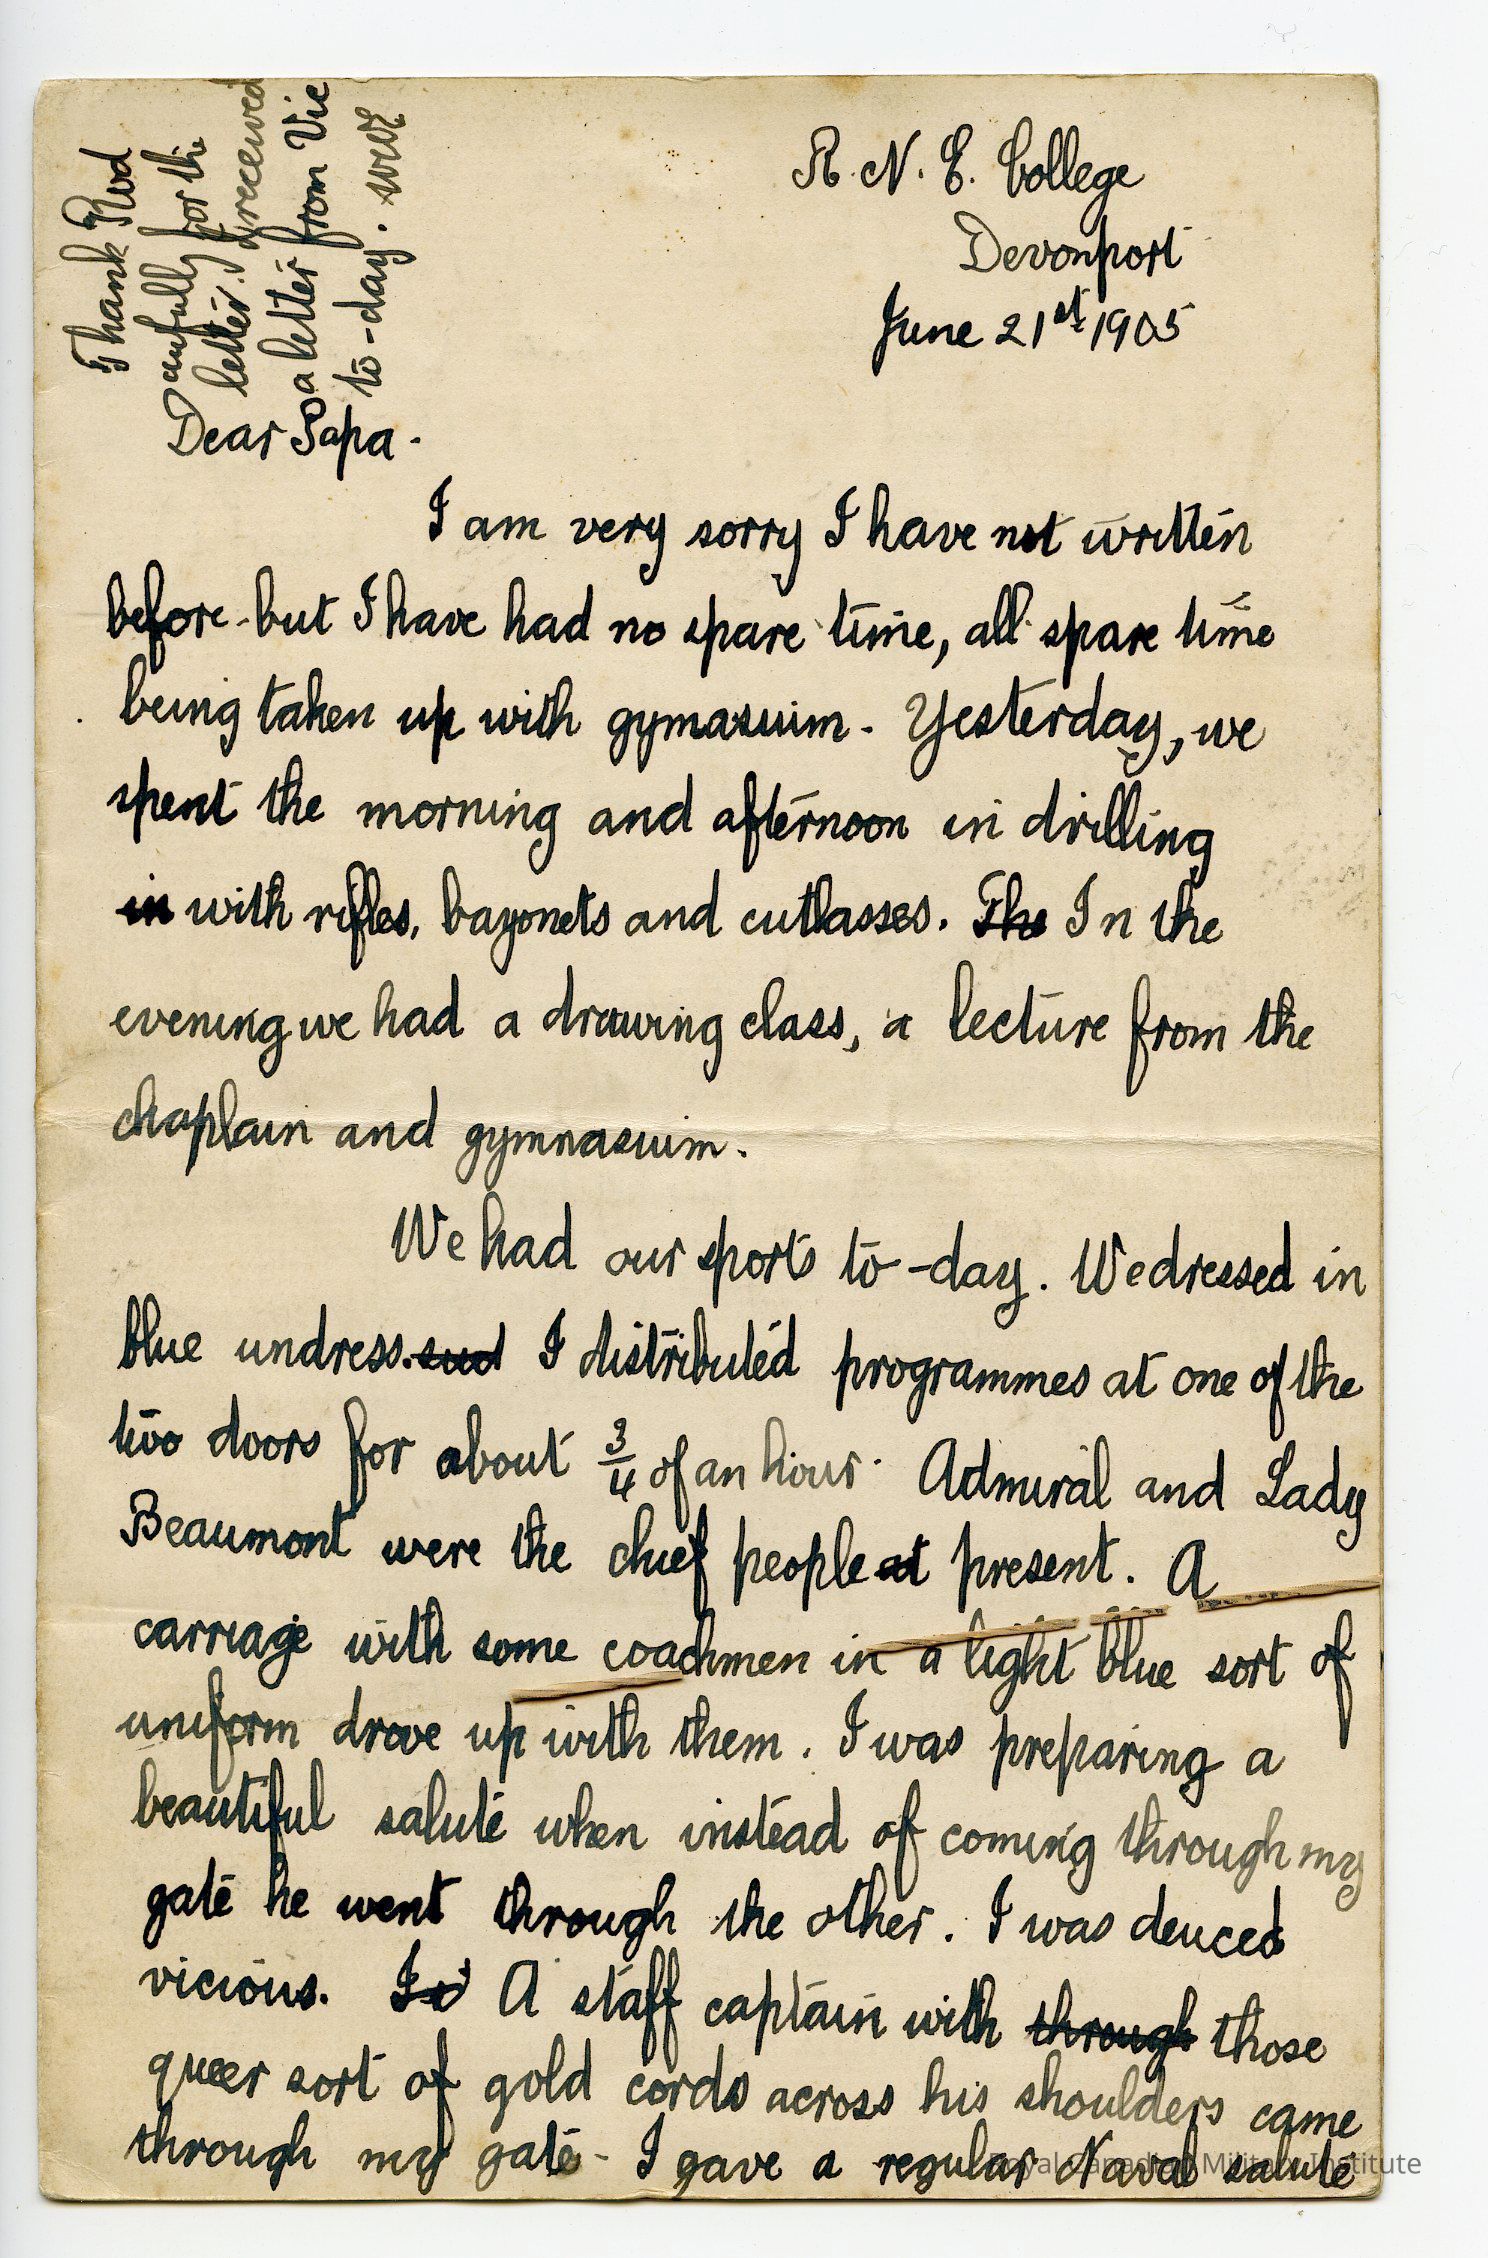 R. N. E. College
Devonport
June 21st 1905
Thank Rod
awfully for the
letter. I received
a letter from Vic
to-day.
Dear Papa -
I am very sorry I have not written
before - but I have had no spare time, all spare time
being taken up with gymasuim - Yesterday, we
spent the morning and afternoon in drilling
in with rifles, bayonets and cutlasses. The In the
evening we had a drawing class, a lecture from the
chaplain and gymnasuim.
We had our sports to-day. We dressed in
blue undress. I distributed programmes at one of the
two doors for about 3/4 of an hour. Admiral and Lady
Beaumont were the chief people at present. A
carriage with some coachmen in a light blue sort of
uniform drove up with them. I was preparing a
beautiful salute when instead of coming through my
gate he went through the other. I was deuced
vicious. A staff captain with through those
queer sort of gold cords across his shoulders came
through my gate - I gave a regular Naval salute
Royal Canadian Military Institute